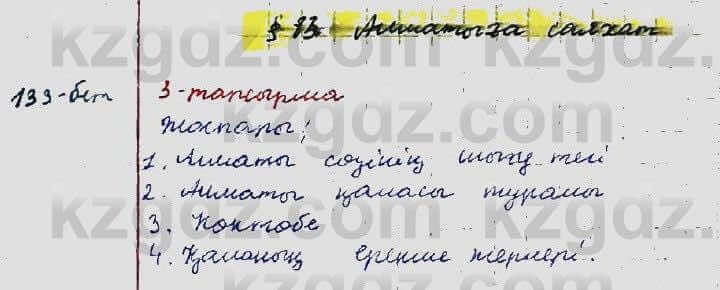 § 13 Алматыға саяхат
133-бет 3-тапсырма
Жоспары:
1. Алматы сөзінің шығу тегі
2. Алматы қаласы туралы
3. Көктөбе
4. Қаланың ерекше жерлері.
kzgdz.com